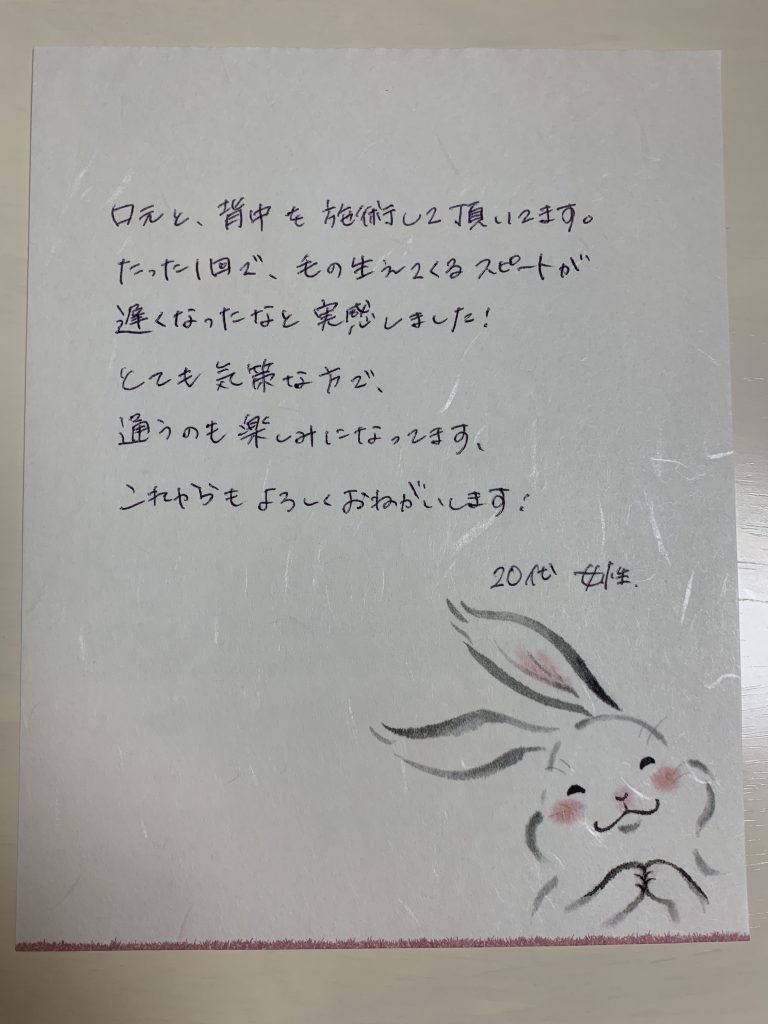 口元と、背中を施術して頂いてます。
たった1回で、毛の生えてくるスピートが
遅くなったなと実感しました！
とても気策な方で、
通うのも楽しみになってます、
これからもよろしくおねがいします！
20代 女性.